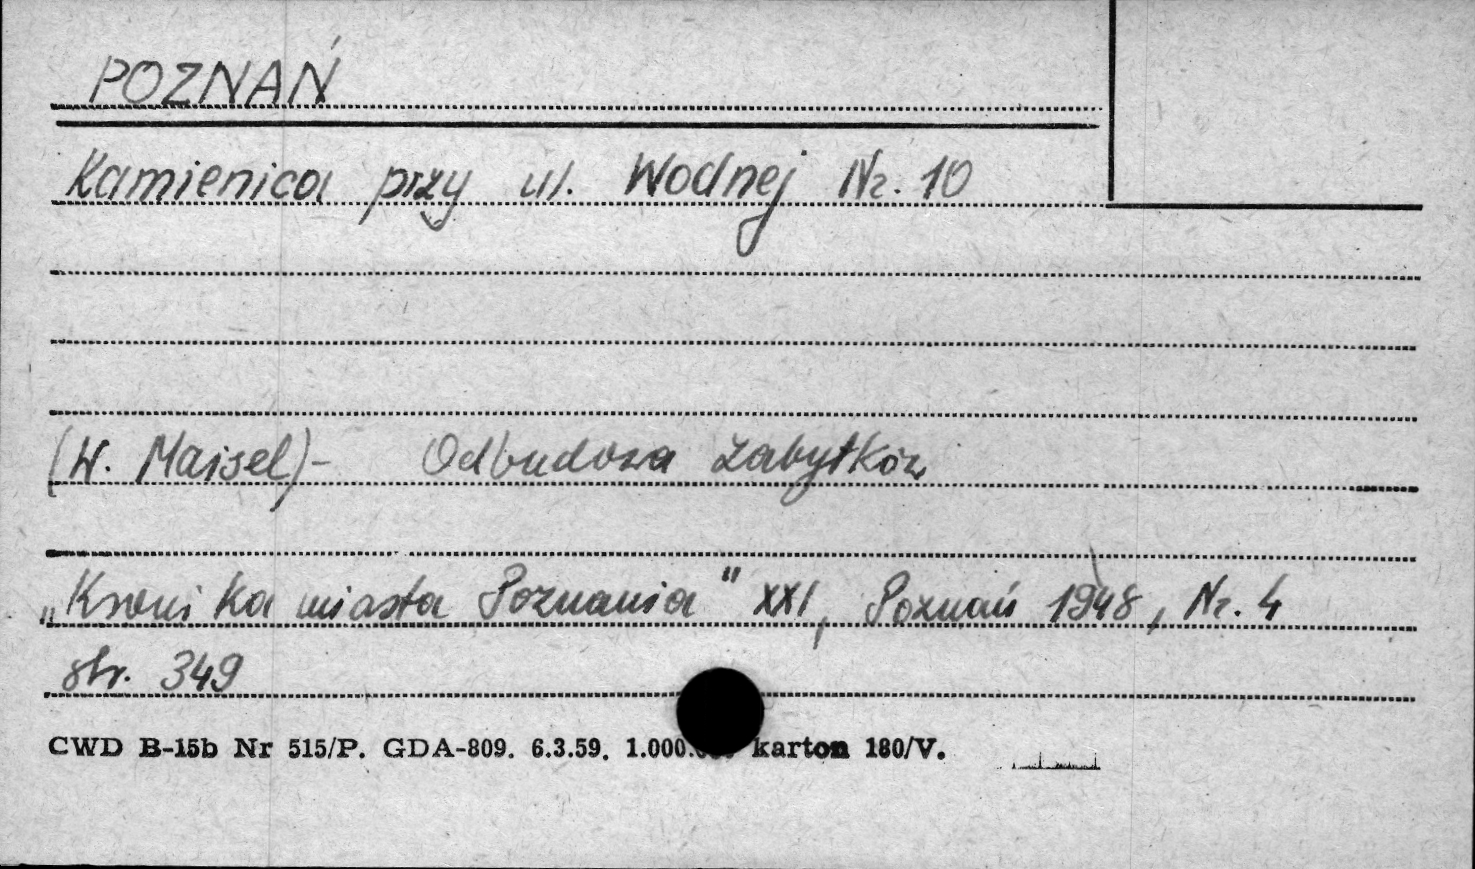 POZNAŃ
Kamienica przy ul. Wodnej Nr. 10
(W. Maisel)- Odbudowa zabytków
„Kronika miasta Poznania" XXI, Poznań 1948, Nr. 4
str. 349
CWD B-15b Nr 515/P. GDA-809. 6.3.59. 1.000. karton 180/V.